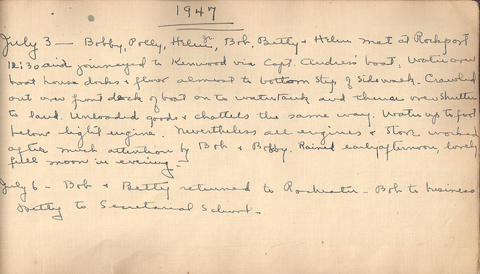 1947
July 3 — Bobby, Polly, Helen Jr, Bob, Betty & Helen met at Rockport
12:30 and journeyed to Kenwood via Capt. Andress' boat, Water over
boat house docks & floor almost to bottom step of sidewalk. Crawled
out over front deck of boat on to watertank and thence over shutter
to land. Unloaded goods & chattels the same way. Water up to foot
below light engine. Nevertheless all engines & stove worked
after much attention by Bob & Bobby. Rained early afternoon, lovely
full moon in evening —
July 6 — Bob & Betty returned to Rochester — Bob to business
Betty to Secretarial School. —